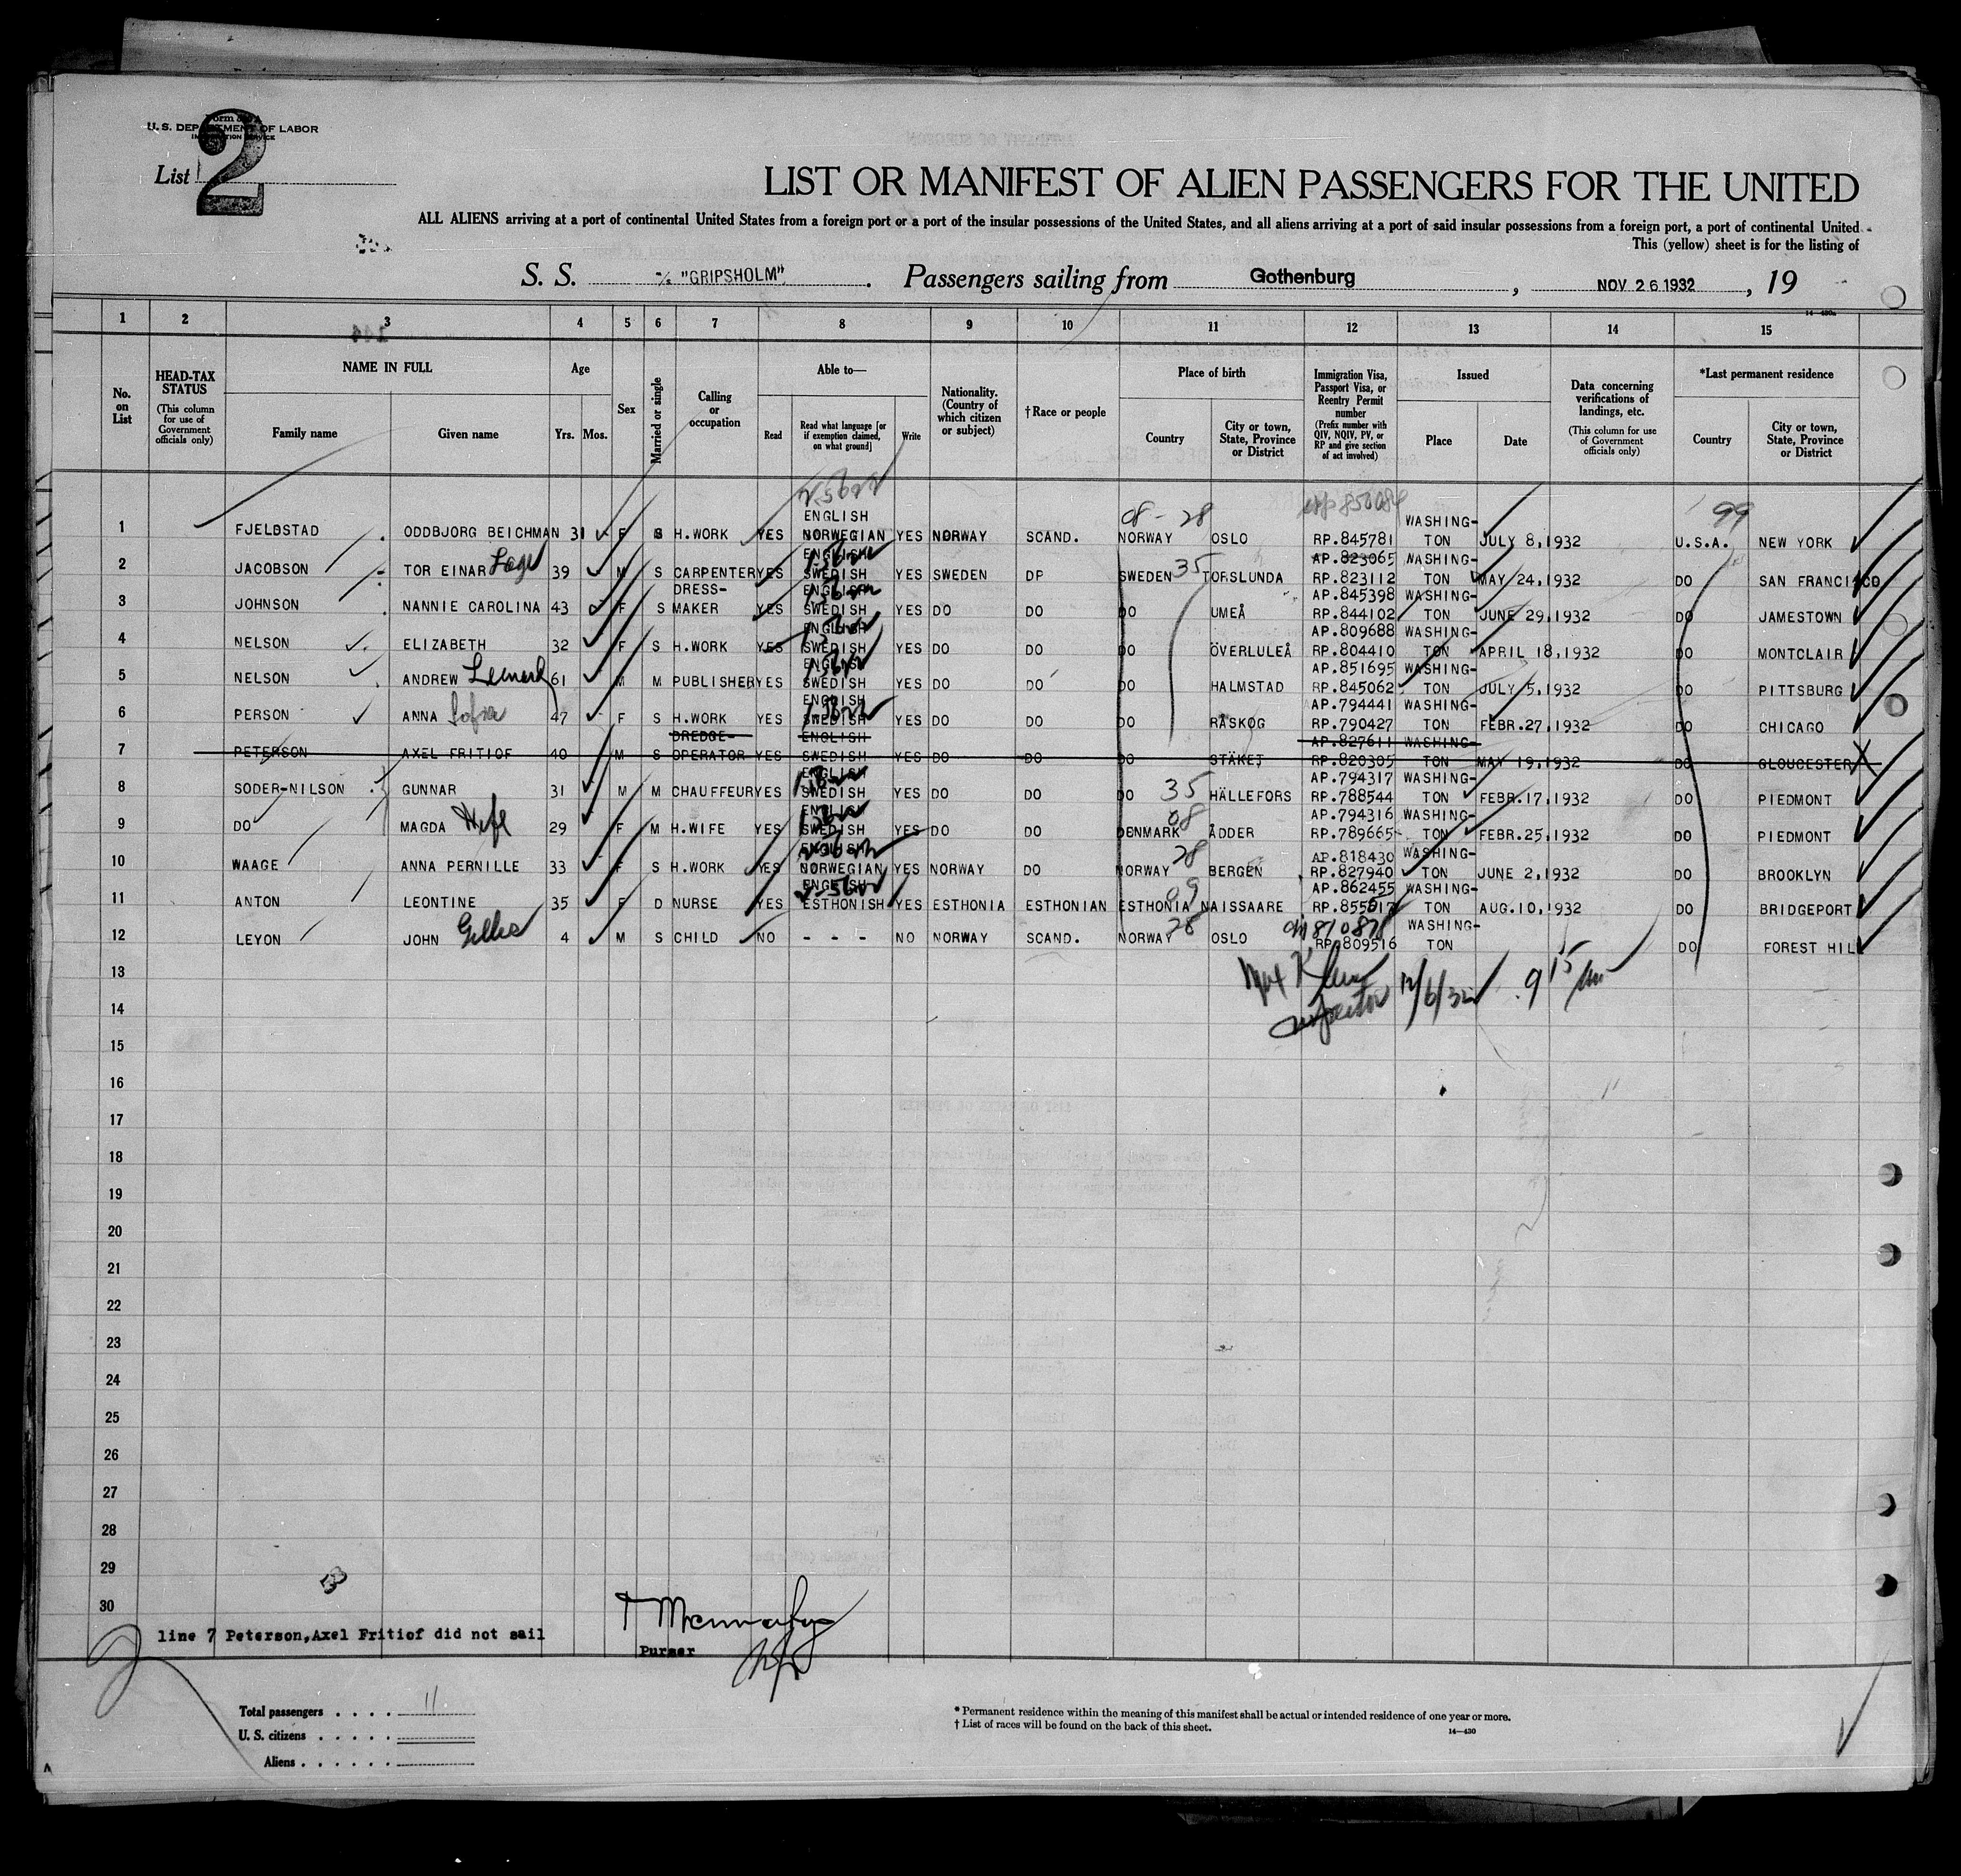 Form 500 A
U. S. DEPARTMENT OF LABOR
IMMIGRATION SERVICE
List 2
LIST OR MANIFEST OF ALIEN PASSENGERS FOR THE UNITED
ALL ALIENS arriving at a port of continental United States from a foreign port or a port of the insular possessions of the United States, and all aliens arriving at a port of said insular possessions from a foreign port, a port of continental United
This (yellow) sheet is for the listing of
S. S. "GRIPSHOLM" . Passengers sailing from Gothenburg , NOV 26 1932 , 19
1 2 3 4 5 6 7 8 9 10 11 12 13 14 15
No. on List
HEAD-TAX STATUS (This column for use of Government officials only)
NAME IN FULL Family name Given name
Age Yrs. Mos.
Sex
Married or single
Calling or occupation
Able to— Read Read what language [or if exemption claimed, on what ground] Write
Nationality. (Country of which citizen or subject)
†Race or people
Place of birth Country City or town, State, Province or District
Immigration Visa, Passport Visa, or Reentry Permit number (Prefix number with QIV, NQIV, PV, or RP and give section of act involved)
Issued Place Date
Data concerning verifications of landings, etc. (This column for use of Government officials only)
*Last permanent residence Country City or town, State, Province or District
08 - 28 99
1 FJELDSTAD ODDBJORG BEICHMAN 31 F S H.WORK YES ENGLISH NORWEGIAN YES NORWAY SCAND. NORWAY OSLO RP.845781 WASHINGTON JULY 8,1932 U.S.A. NEW YORK
2 JACOBSON TOR EINAR 39 M S CARPENTER YES ENGLISH SWEDISH YES SWEDEN DO SWEDEN 35 TORSLUNDA AP.823065 RP.823112 WASHINGTON MAY 24,1932 DO SAN FRANCISCO
3 JOHNSON NANNIE CAROLINA 43 F S DRESS-MAKER YES ENGLISH SWEDISH YES DO DO DO UMEÅ AP.845398 RP.844102 WASHINGTON JUNE 29,1932 DO JAMESTOWN
4 NELSON ELIZABETH 32 F S H.WORK YES ENGLISH SWEDISH YES DO DO DO ÖVERLULEÅ AP.809688 RP.804410 WASHINGTON APRIL 18,1932 DO MONTCLAIR
5 NELSON ANDREW 61 M M PUBLISHER YES ENGLISH SWEDISH YES DO DO DO HALMSTAD AP.851695 RP.845062 WASHINGTON JULY 5,1932 DO PITTSBURG
6 PERSON ANNA Sofia 47 F S H.WORK YES ENGLISH SWEDISH YES DO DO DO RÅSKOG AP.794441 RP.790427 WASHINGTON FEBR.27,1932 DO CHICAGO
7 PETERSON AXEL FRITIOF 40 M S DREDGE-OPERATOR YES ENGLISH SWEDISH YES DO DO DO STÄKET AP.827611 RP.820305 WASHINGTON MAY 19,1932 DO GLOUCESTER
8 SODER-NILSON GUNNAR 31 M M CHAUFFEUR YES ENGLISH SWEDISH YES DO DO DO 35 HÄLLEFORS AP.794317 RP.788544 WASHINGTON FEBR.17,1932 DO PIEDMONT
9 DO MAGDA Wife 29 F M H.WIFE YES ENGLISH SWEDISH YES DO DO DENMARK 08 ÅDDER AP.794316 RP.789665 WASHINGTON FEBR.25,1932 DO PIEDMONT
10 WAAGE ANNA PERNILLE 33 F S H.WORK YES ENGLISH NORWEGIAN YES NORWAY DO NORWAY 28 BERGEN AP.818430 RP.827940 WASHINGTON JUNE 2,1932 DO BROOKLYN
11 ANTON LEONTINE 35 F D NURSE YES ENGLISH ESTHONISH YES ESTHONIA ESTHONIAN ESTHONIA 09 NAISSAARE AP.862455 RP.855617 WASHINGTON AUG.10,1932 DO BRIDGEPORT
12 LEYON JOHN 4 M S CHILD NO - - - NO NORWAY SCAND. NORWAY 28 OSLO 810878 RP.809516 WASHINGTON DO FOREST HIL
13 12/6/32 9 15 am
14 Inspector
15
16
17
18
19
20
21
22
23
24
25
26
27
28
29
30
line 7 Peterson,Axel Fritiof did not sail
Purser
Total passengers . . . . 11
U. S. citizens . . . . .
Aliens . . . . . .
* Permanent residence within the meaning of this manifest shall be actual or intended residence of one year or more.
† List of races will be found on the back of this sheet. 14—430